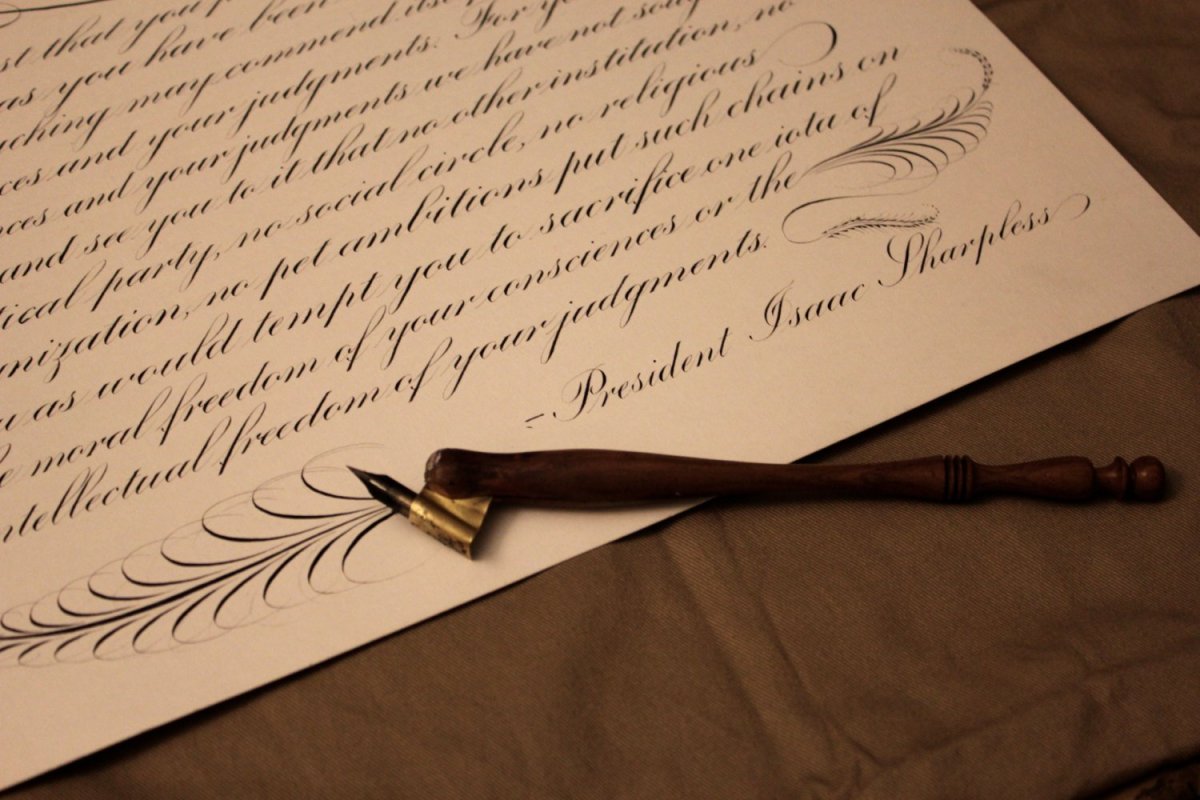 st that you
as you have been
ching may commend itse
ces and your judgments. For yo
nces and your judgments we have not soug
and see you to it that no other institution, no
tical party, no social circle, no religious
nization, no pet ambitions put such chains on
u as would tempt you to sacrifice one iota of
e moral freedom of your consciences or the
ntellectual freedom of your judgments.
-President Isaac Sharpless